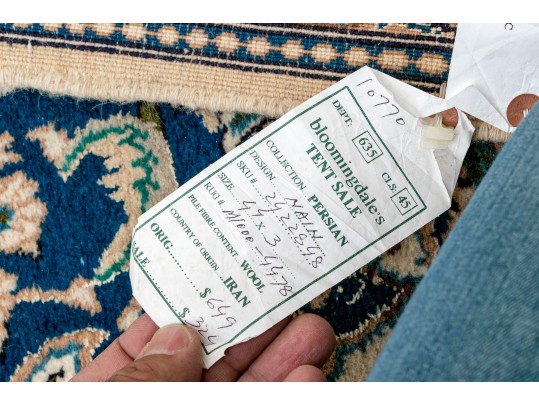 10770
DEPT: 635 CLS: 45
bloomingdale's
TENT SALE
COLLECTION PERSIAN
DESIGN NAIN
SKU #
SIZE 44 x 3
RUG # M1000-4478
PILE FIBRE CONTENT WOOL
COUNTRY OF ORIGIN IRAN
ORIG. $ 649
ALE $ 324